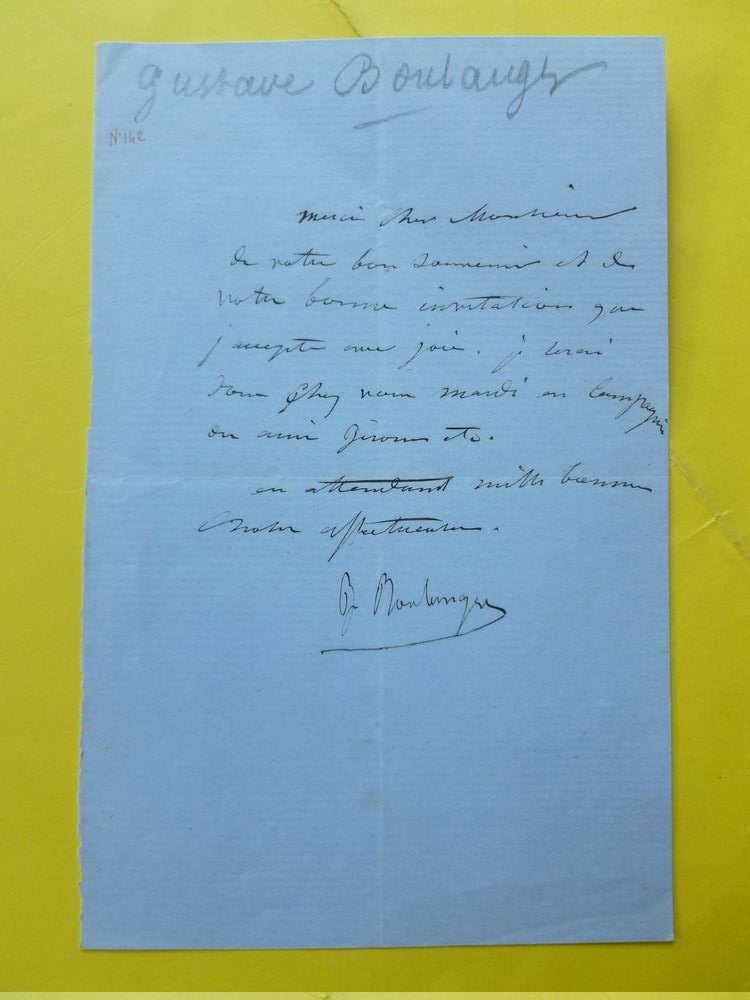 Gustave Boulanger
N°142
merci cher Monsieur
de votre bon souvenir et de
votre bonne invitation que
j'accepte avec joie. je serai
donc chez vous mardi en compagnie
du ami Gérome etc.
en attendant mille bonnes
choses affectueuses.
G Boulanger